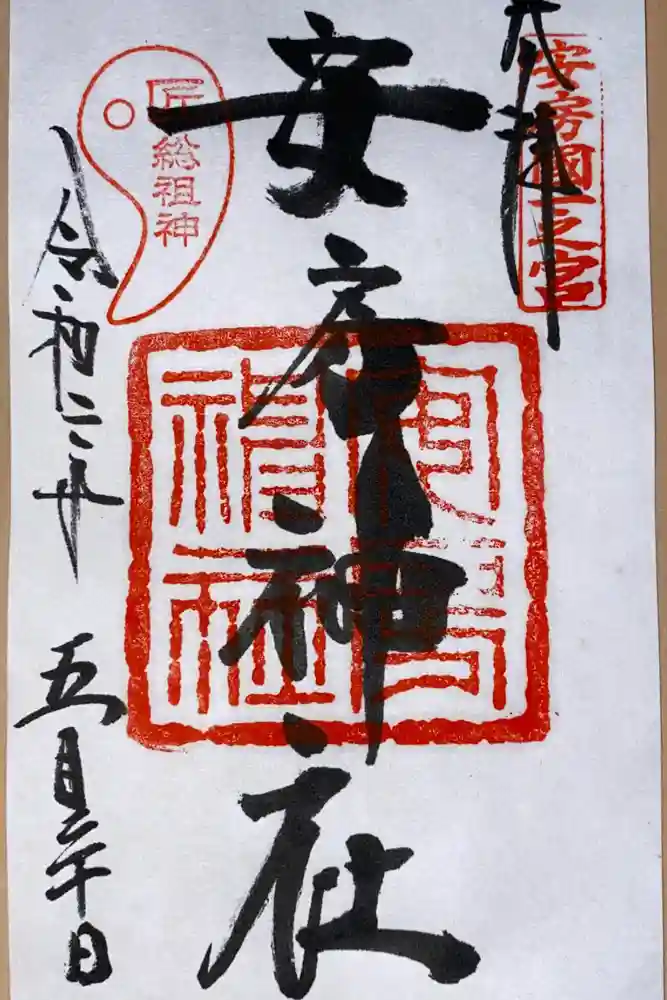 奉拝
安房國一之宮
安房神社
安房神社
匠総祖神
令和二年
五月二十日